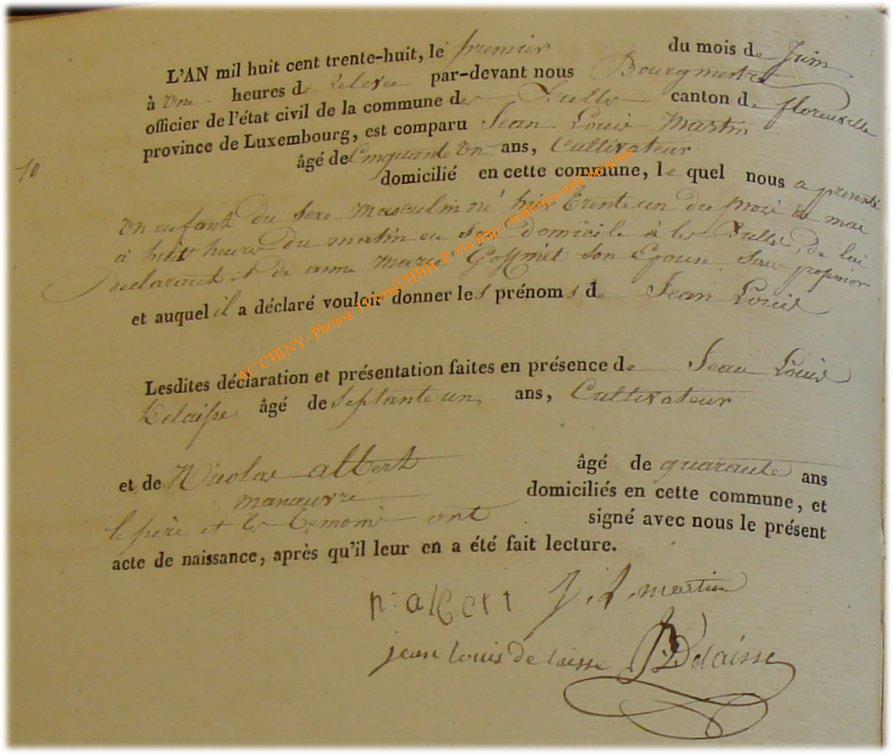 L'AN mil huit cent trente-huit, le premier du mois de Juin
à une heures de relevée par-devant nous Bourgmestre
officier de l'état civil de la commune de Les Bulles canton de florenville
province de Luxembourg, est comparu Jean Louis Martin
âgé de Cinquante un ans, Cultivateur
10
domicilié en cette commune, le quel nous a presenté
un enfant du sexe masculin né hier trente un du mai
à huit heures du matin en son domicile à les Bulles, de lui
declarant et de anne marie son Epouse
et auquel il a déclaré vouloir donner les prénoms de Jean Louis
AC CHINY - Photos
Lesdites déclaration et présentation faites en présence de Jean Louis
Delaisse âgé de Septante un ans, Cultivateur
et de Nicolas albert âgé de quarante ans
manœuvre domiciliés en cette commune, et
le père et les temoins ont signé avec nous le présent
acte de naissance, après qu'il leur en a été fait lecture.
n: albert J. L. martin
jean louis de laisse Delaisse